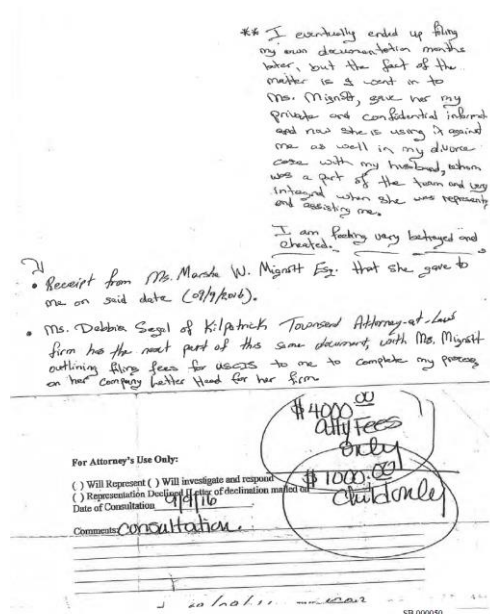 ** I eventually ended up filing
my own documentation months
later, but the fact of the
matter is I went in to
Ms. Mignott, gave her my
private and confidential informat
and now she is using it against
me as well in my divorce
case with my husband, whom
was a part of the team and very
integral when she was represent
and assisting me.
I am feeling very betrayed and
cheated.
• Receipt from Ms. Marsha W. Mignott Esq. that she gave to
me on said date (09/9/2016).
• Ms. Debbie Segal of Kilpatrick Townsend Attorney-at-Law
firm has the next part of this same document, with Ms. Mignott
outlining filing fees for USCIS to me to complete my process
on her company Letter Head for her firm
$4000.00
Atty Fees
Only
For Attorney's Use Only:
( ) Will Represent ( ) Will investigate and respond
$1000.00
Child only
( ) Representation Declined Letter of declination mailed on
Date of Consultation 9/9/16
Comments: Consultation.
SB 000050